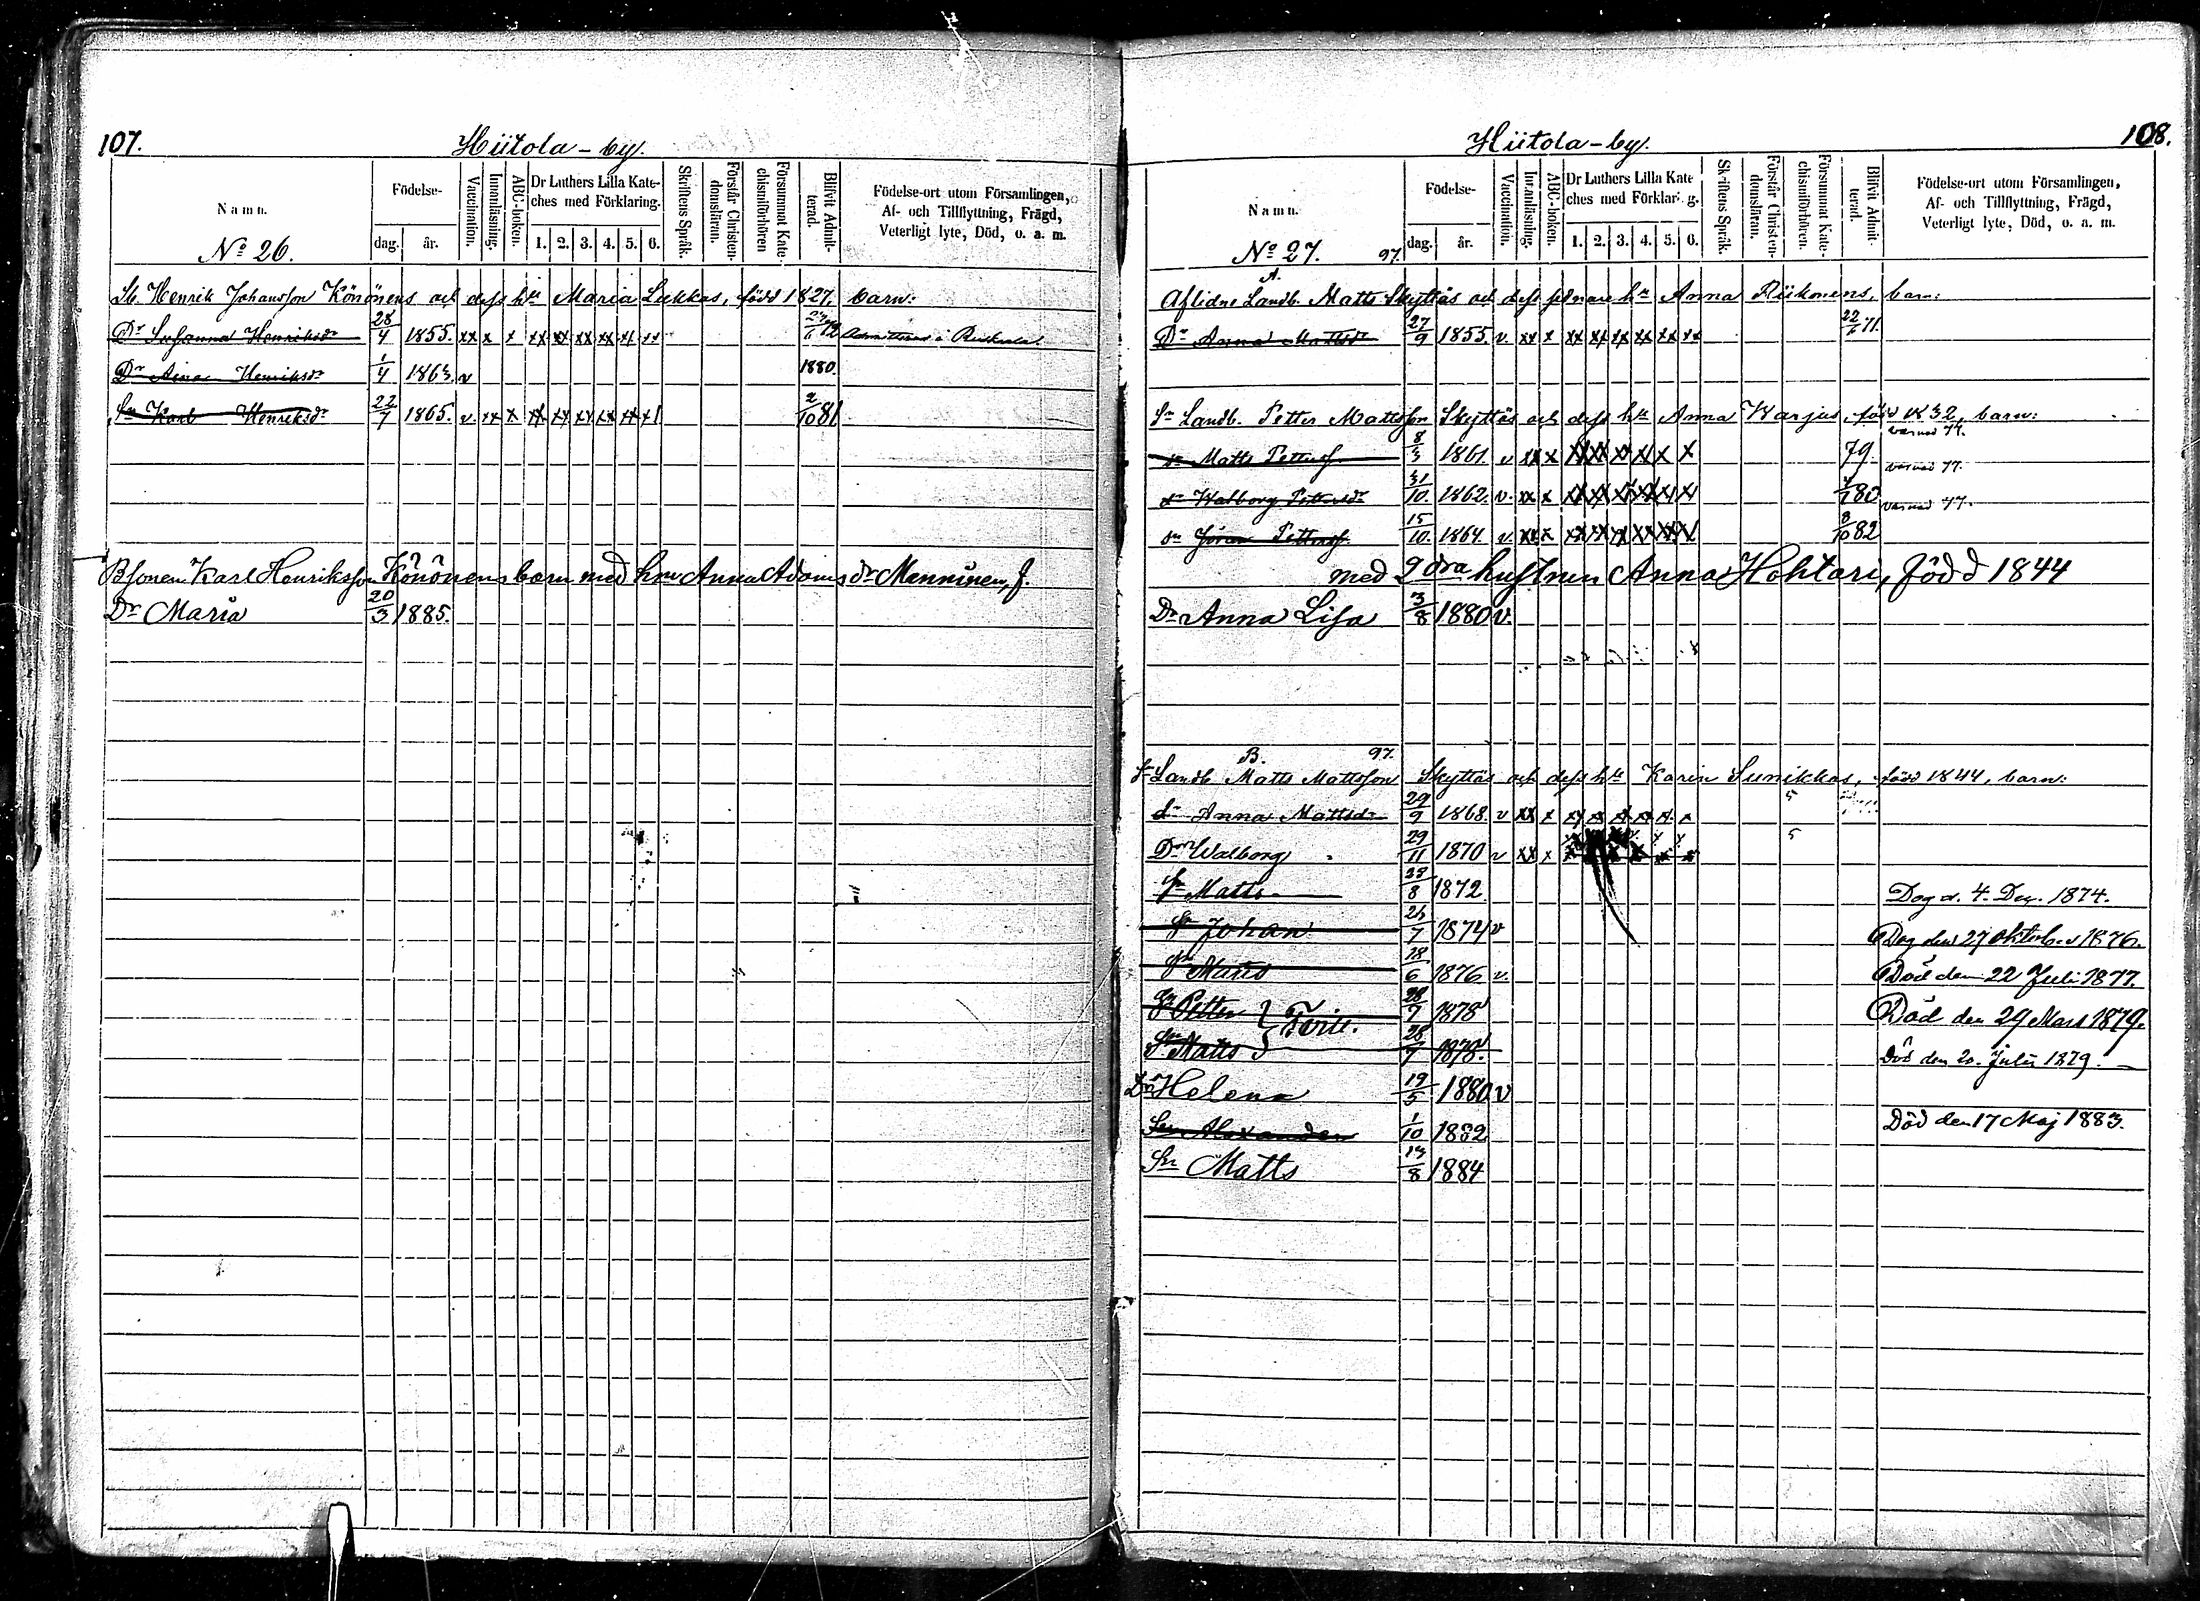 107.
Hiitola-by.
Namn.
No 26.
Födelse-
dag. år.
Vaccination.
Innanläsning.
ABC-boken.
Dr Luthers Lilla Kate-
ches med Förklaring.
1. 2. 3. 4. 5. 6.
Skriftens Språk.
Förstår Christen-
domsläran.
Försummat Kate-
chismiförhören
Blifvit Admit-
terad.
Födelse-ort utom Församlingen,
Af- och Tillflyttning, Frägd,
Veterligt lyte, Död, o. a. m.
Henrik Johansson Könönens och dess h:u Maria Lukkas, född 1827, barn:
Dr Susanna Henriksdr 28/4 1855. xx x x xx xx xx xx xx xx 72
Dr Henriksdr 1/4 1863. v 1880.
Sn Karl Henriksdr 22/7 1865. v. xx x xx xx xx xx xx x 2/10 81
B sonen Karl Henrikssons Könönens barn med hru Anna Adamsdr Menninen, f.
Dr Maria 20/3 1885.
108.
Hiitola-by.
Namn.
No 27. 97.
Födelse-
dag. år.
Vaccination.
Innanläsning.
ABC-boken.
Dr Luthers Lilla Kate
ches med Förklar. g.
1. 2. 3. 4. 5. 6.
Skriftens Språk.
Förstår Christen-
domsläran.
Försummat Kate-
chismiförhören.
Blifvit Admit-
terad.
Födelse-ort utom Församlingen,
Af- och Tillflyttning, Frägd,
Veterligt lyte, Död, o. a. m.
A.
Aflidne Landb. Matts Skyttäs och dess sednare h:u Anna Riikonens, barn:
Dr Anna Mattsdr 27/9 1855. v. xx x xx xx xx xx xx xx 22/6 71.
Sn Landb. Petter Mattsson Skyttäs och dess h:u Anna Karjus, född 1832, barn:
sn Matts Petterss. 8/3 1861. v xx x xx xx xx xx x x 79.
dr Walborg Pettersdr 31/10. 1862. v. xx x xx xx xx xx xx xx 80
sn Petterss. 15/10. 1864. v. xx x xx xx xx xx xx xx 8/10 82
med 2dra hustrun Anna Hohtari, född 1844
Dr Anna Lisa 3/8 1880 v.
B. 97.
Sn Landb. Matts Mattsson Skyttäs och dess h:u Karin Sunikkas, född 1844, barn:
dr Anna Mattsdr 29/9 1868. v xx x xx xx xx xx x x 5
Dr Walborg 29/11 1870 v xx x x x x x 5
Sn Matts 28/8 1872. Dog d. 4. Dec. 1874.
Sn Johan 26/7 1874 v Dog den 27 Oktober 1876.
Sn Matts 18/6 1876 v. Död den 22 Juli 1877.
Sn Petter } Tvill. 28/7 1878 Död den 29 Mars 1879.
Sn Matts 28/7 1878. Död den 20. Julii 1879.
Dr Helena 19/5 1880 v
Son Alexander 1/10 1882 Död den 17 Maj 1883.
Sn Matts 13/8 1884